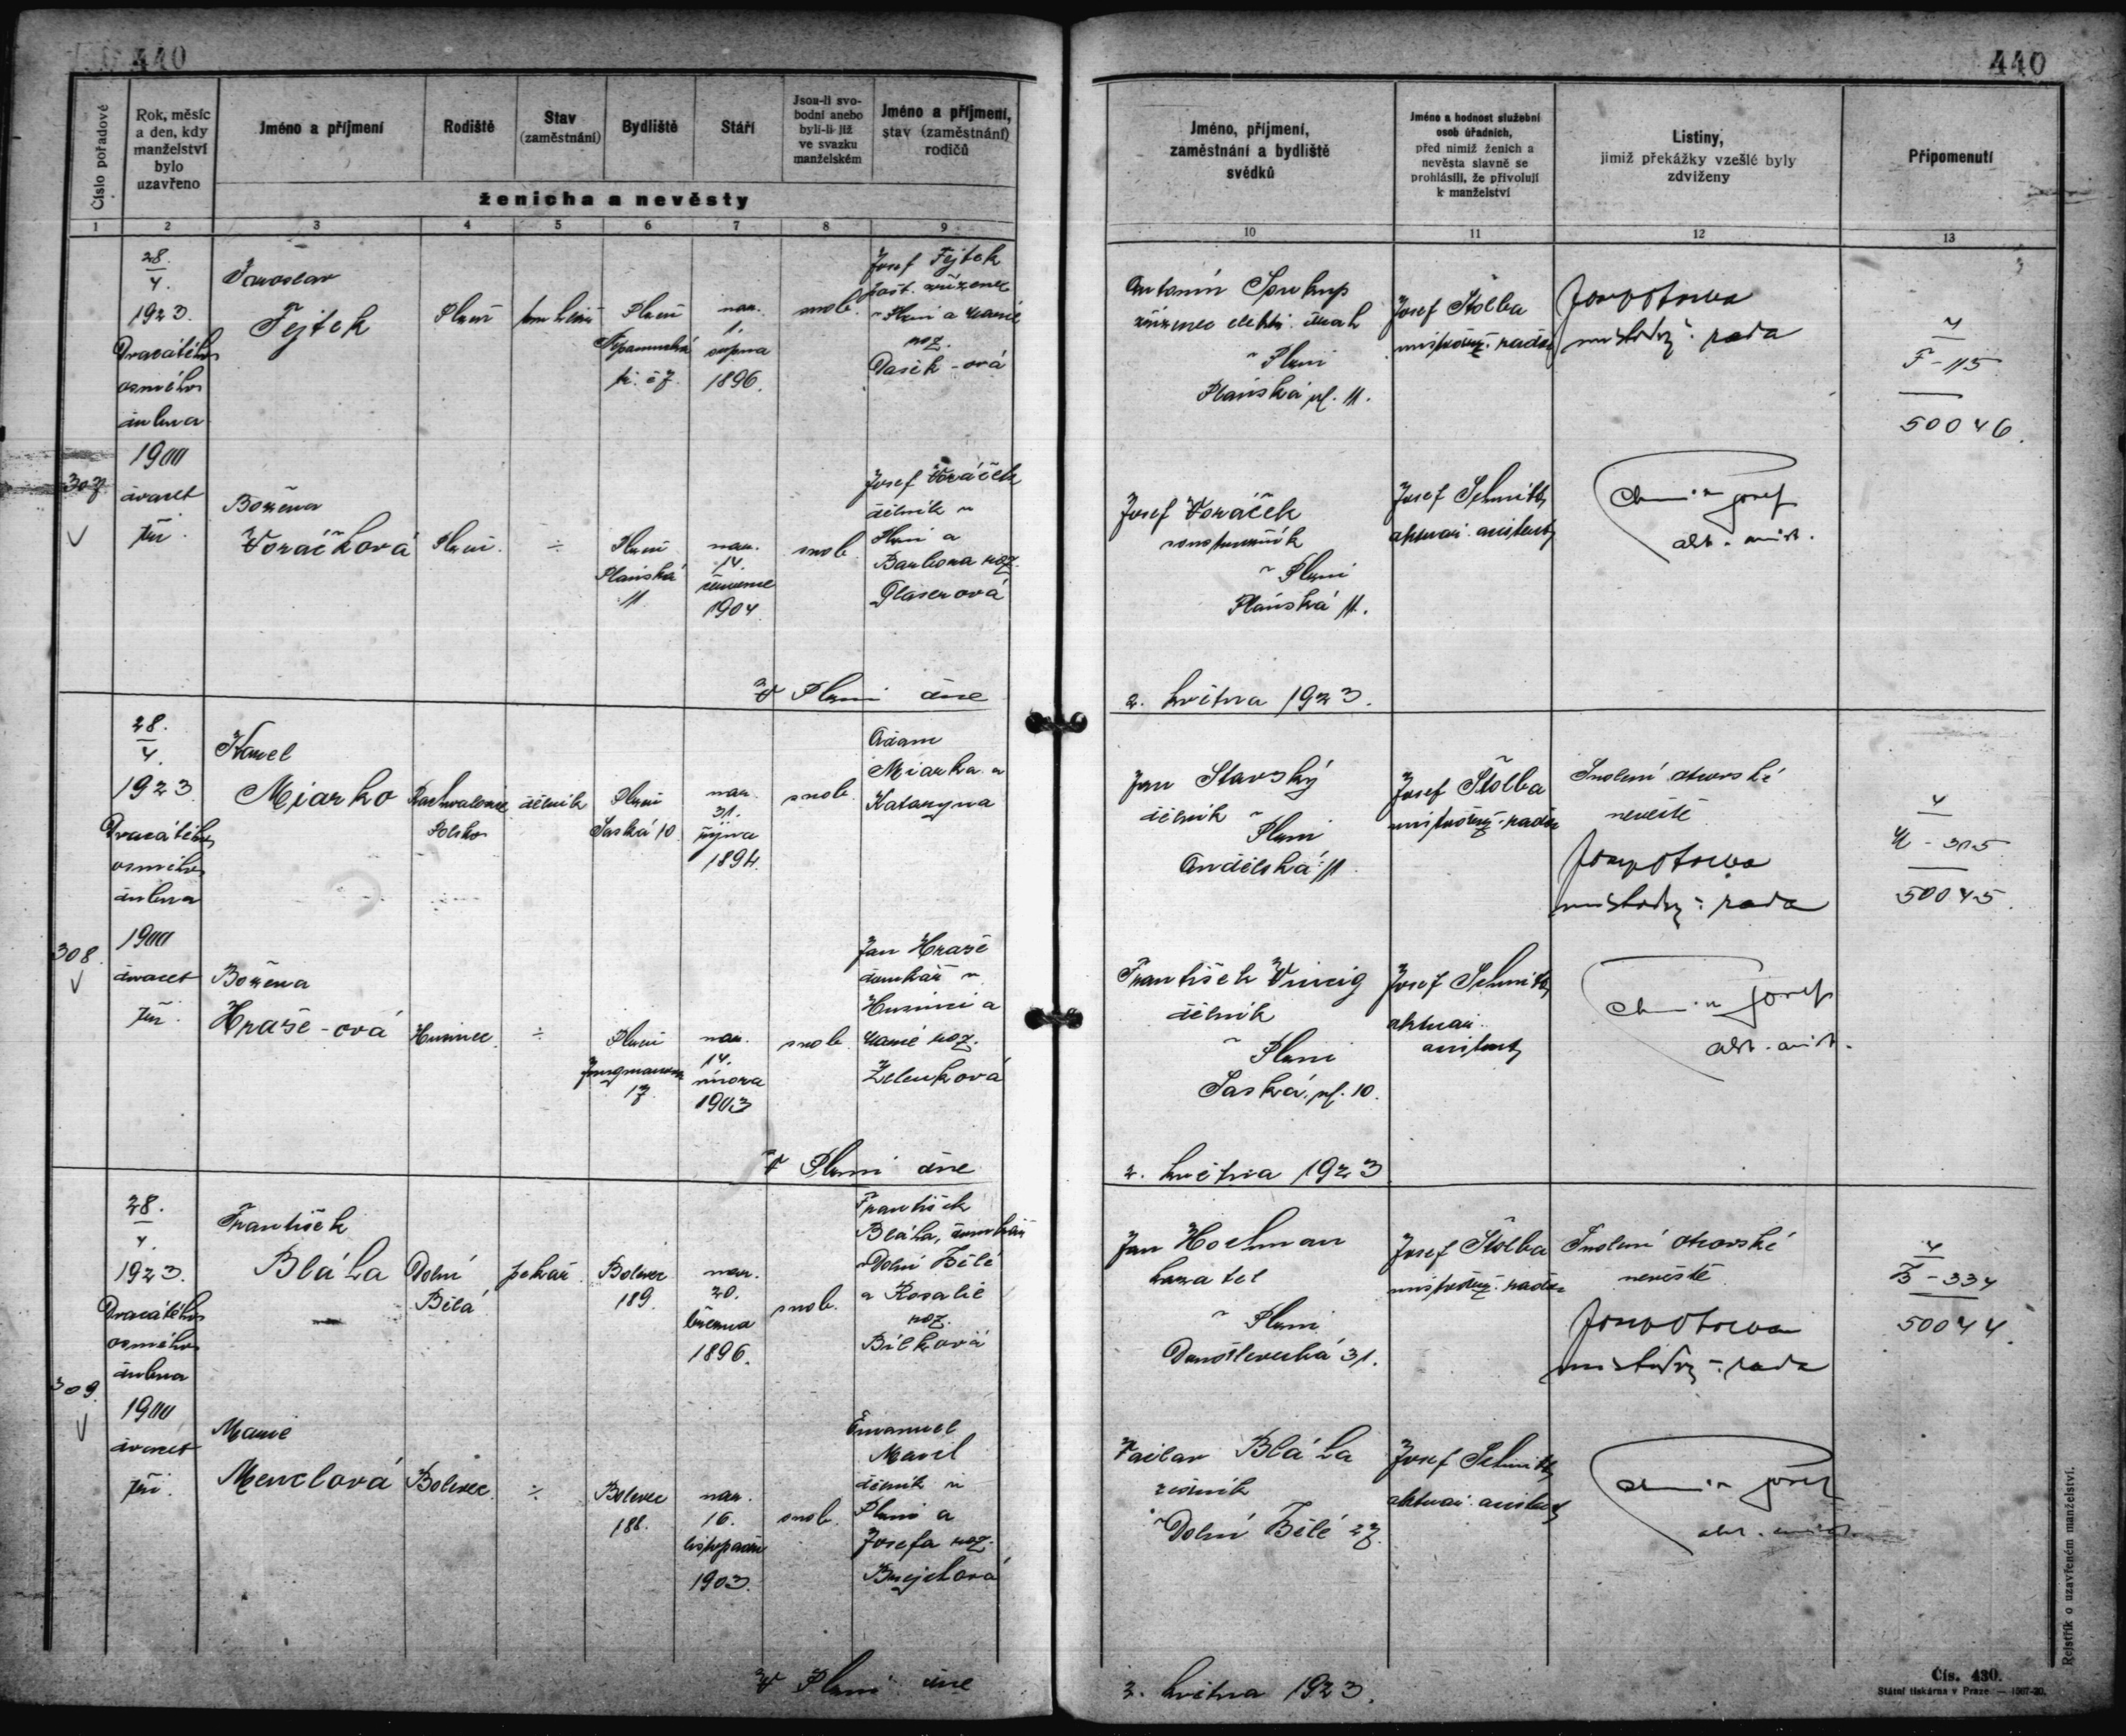 440
440
Číslo pořadové
Rok, měsíc
a den, kdy
manželství
bylo
uzavřeno
Jméno a příjmení
Rodiště
Stav
(zaměstnání)
Bydliště
Stáří
Jsou-li svo-
bodni anebo
byli-li již
ve svazku
manželském
Jméno a příjmení,
stav (zaměstnání)
rodičů
ženicha a nevěsty
1 2 3 4 5 6 7 8 9
Jméno, příjmení,
zaměstnání a bydliště
svědků
Jméno a hodnost služební
osob úředních,
před nimiž ženich a
nevěsta slavně se
prohlásili, že přivolují
k manželství
Listiny,
jimiž překážky vzešlé byly
zdviženy
Připomenutí
10 11 12 13
307
28.
4.
1923.
Dvacátého
osmého
dubna
1900
dvacet
tři.
Jaroslav
Fejtek
Plzeň
Plzeň
nar.
1.
srpna
1896.
svob.
Josef Fejtek
v Plzni a Marie
roz.
Antonín Soukup
zřízenec elektr. drah
v Plzni
Plaňská ul. 11.
Josef Štolba
místostar. rada
4
F-115
50046.
Božena
Voráčková
Plzeň.
÷
Plzeň
Plaňská
11
nar.
14.
července
1904
svob.
Josef Voráček
dělník v
Plzni a
Barbora roz.
Glaserová
Josef Voráček
v Plzni
Plaňská 11.
Josef Schmidt
aktuár. asistent
V Plzni dne
2. května 1923.
308.
28.
4.
1923
Dvacátého
osmého
dubna
1900
dvacet
tři.
Karel
Miarko
Polsko
dělník
Plzeň
Saská 10
nar.
31.
října
1894.
svob.
Adam
Miarka a
Katarzyna
Jan Slavský
dělník v
Plzni
Andělská 11
Josef Štolba
Svolení otcovské
nevěstě
4
M-315
50045.
Božena
Hraše-ová
Husinec.
÷
Plzeň
Jungmanova
17
nar.
14.
února
1903
svob.
Jan Hraše
domkář v
Husinci a
Marie roz.
Zelenková
František Vincig
dělník
v Plzni
Saská ul. 10.
Josef Schmidt
aktuár.
asistent
V Plzni dne
2. května 1923
309.
28.
4.
1923.
Dvacátého
osmého
dubna
1900
dvacet
tři.
František
Bláha
Dolní
Bělá
pekař.
Bolevec
189.
nar.
20.
března
1896.
svob.
František
Bláha, domkář
v Dolní Bělé
a Rosalie
roz.
Bílková
Jan Hochman
havatel
v Plzni
Doudlevecká 31.
Josef Štolba
Svolení otcovské
nevěstě
4
B-334
50044.
Marie
Menclová
Bolevec.
÷
Bolevec
188.
nar.
16.
listopadu
1903.
svob.
Emanuel
Mencl
dělník v
Plzni a
Josefa roz.
Brejchová
Václav Bláha
v Dolní Bělé 27.
Josef Schmidt
aktuár. asistent
V Plzni dne
2. května 1923.
Čís. 430.
Státní tiskárna v Praze. — 1567-20.
Rejstřík o uzavřeném manželství.